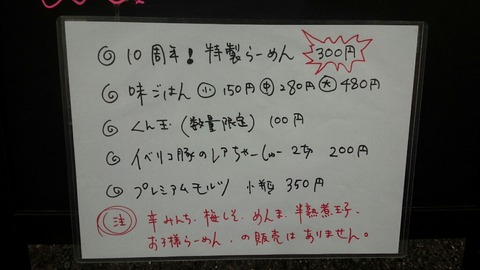 ◎ 10周年! 特製らーめん 300円
◎ 味ごはん 小 150円 中 280円 大 480円
◎ くん玉 (数量限定) 100円
◎ イベリコ豚のレアちゃーしゅー 2本 200円
◎ プレミアムモルツ 小瓶 350円
注 辛みんち、梅しそ、めんま、半熟煮玉子、
お子様らーめん、の販売はありません。